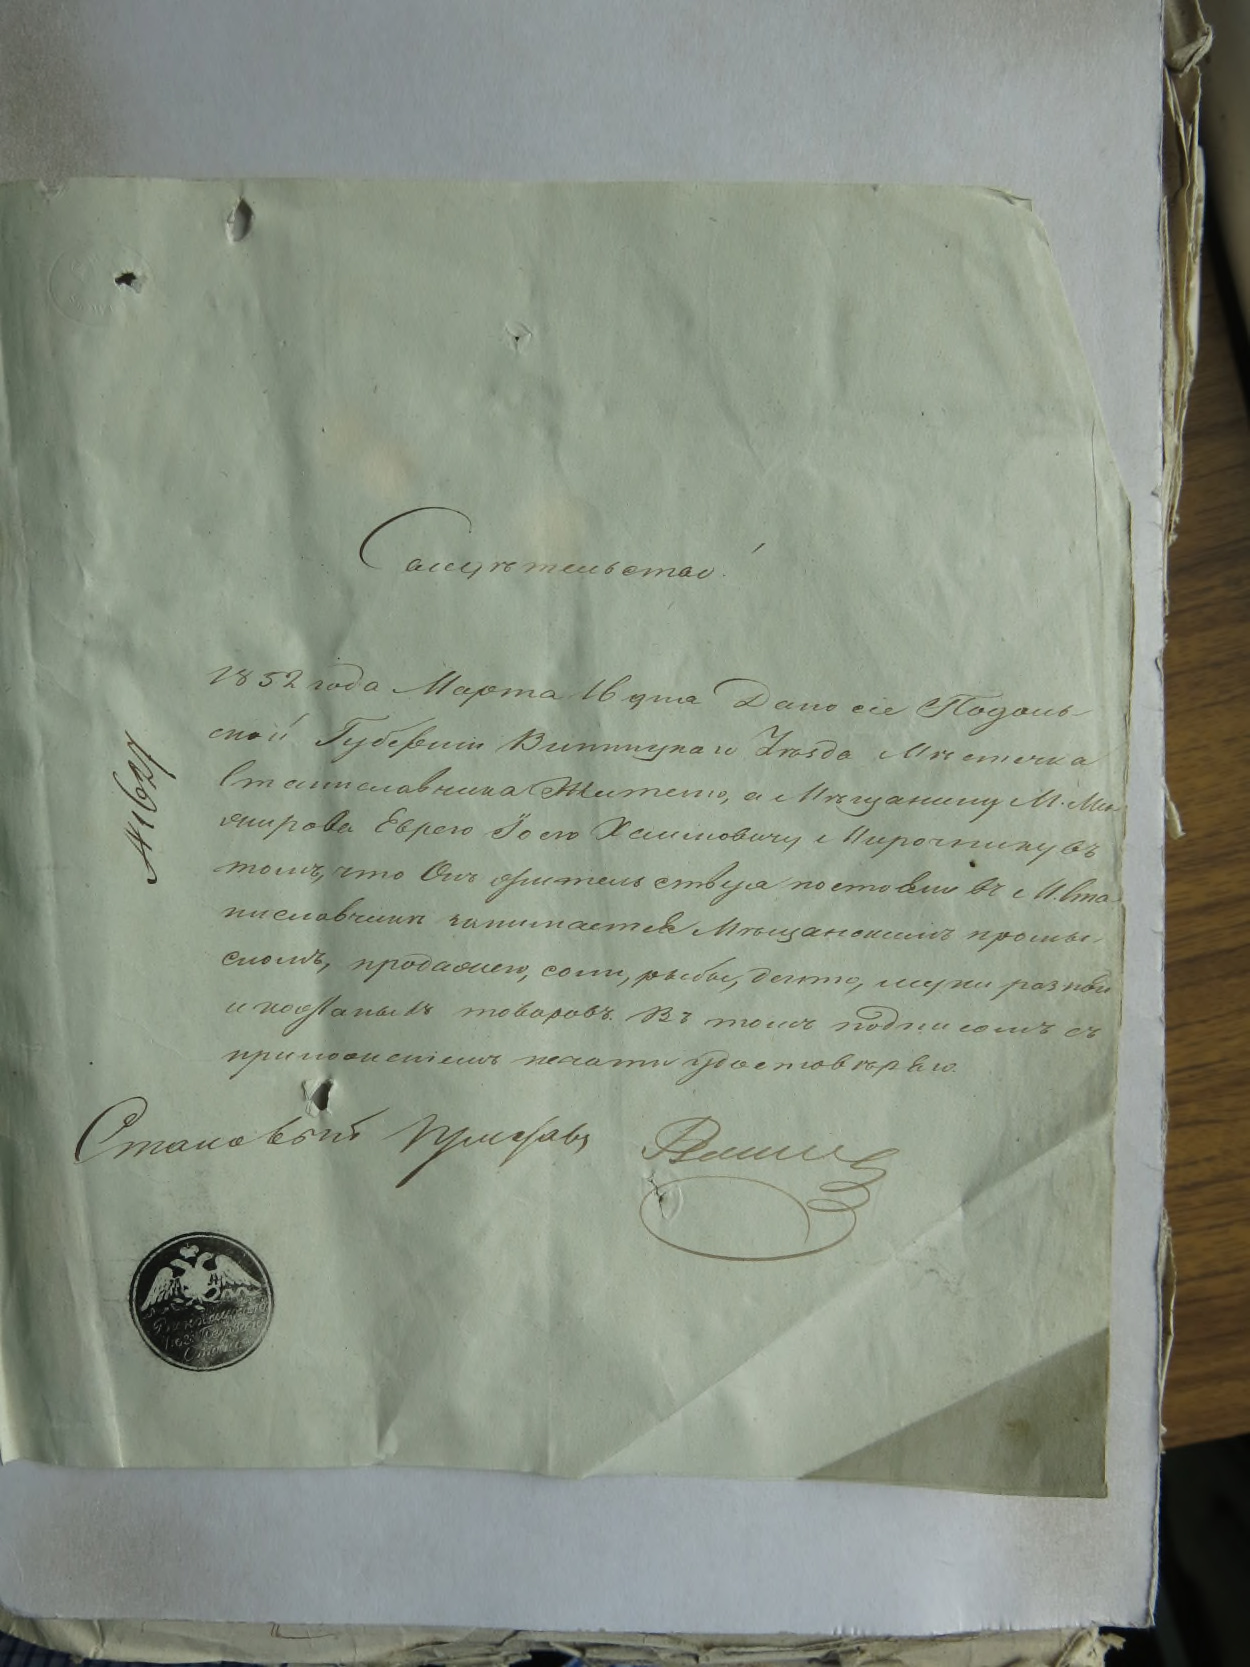 Свидѣтельство.
1852 года Марта 16 дня Дано сіе Подоль-
ской Губерніи Винницкаго Уѣзда Мѣстечка
Станиславчика Жителю, а Мѣщанину М.
Еврею Хаимовичу Мирочнику въ
томъ, что Онъ жительствуя въ М. Ста-
ниславчикѣ занимается Мѣщанскимъ промы-
сломъ, продажею, соли, рыбы, дегтю, муки разной
и товаровъ. Въ томъ подписомъ съ
приложеніемъ печати удостовѣряю.
Становый Приставъ
№ 1627